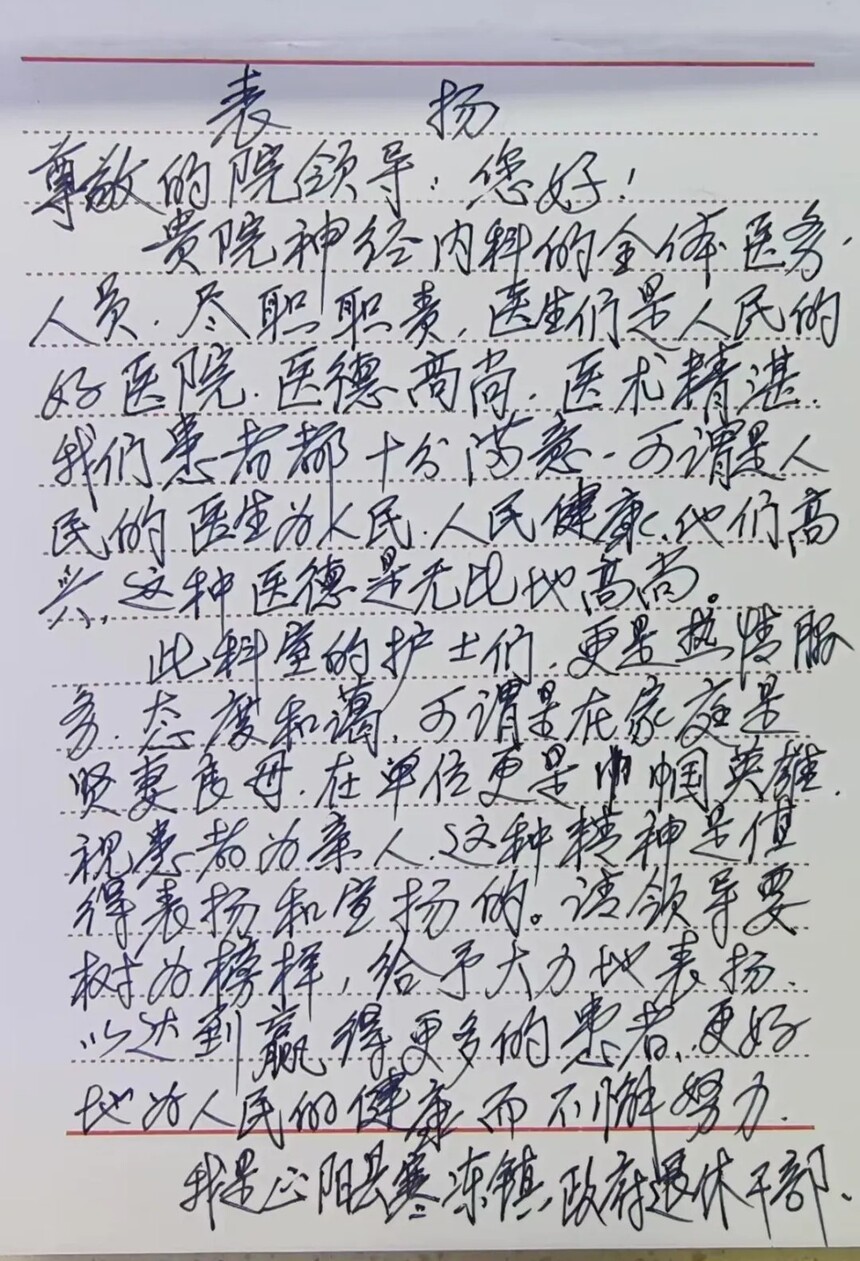 表 扬
尊敬的院领导：您好！
贵院神经内科的全体医务
人员.尽职职责.医生们是人民的
好医院.医德高尚.医术精湛.
我们患者都十分满意.可谓是人
民的医生为人民.人民健康.他们高
兴.这种医德是无比地高尚。
此科室的护士们.更是热情服
务.态度和蔼.可谓是在家庭是
贤妻良母.在单位更是巾帼英雄.
视患者为亲人.这种精神是值
得表扬和宣扬的。请领导要
树为榜样，给予大力地表扬.
以达到赢得更多的患者、更好
地为人民的健康而不懈努力.
我是正阳县寒冻镇政府退休干部.